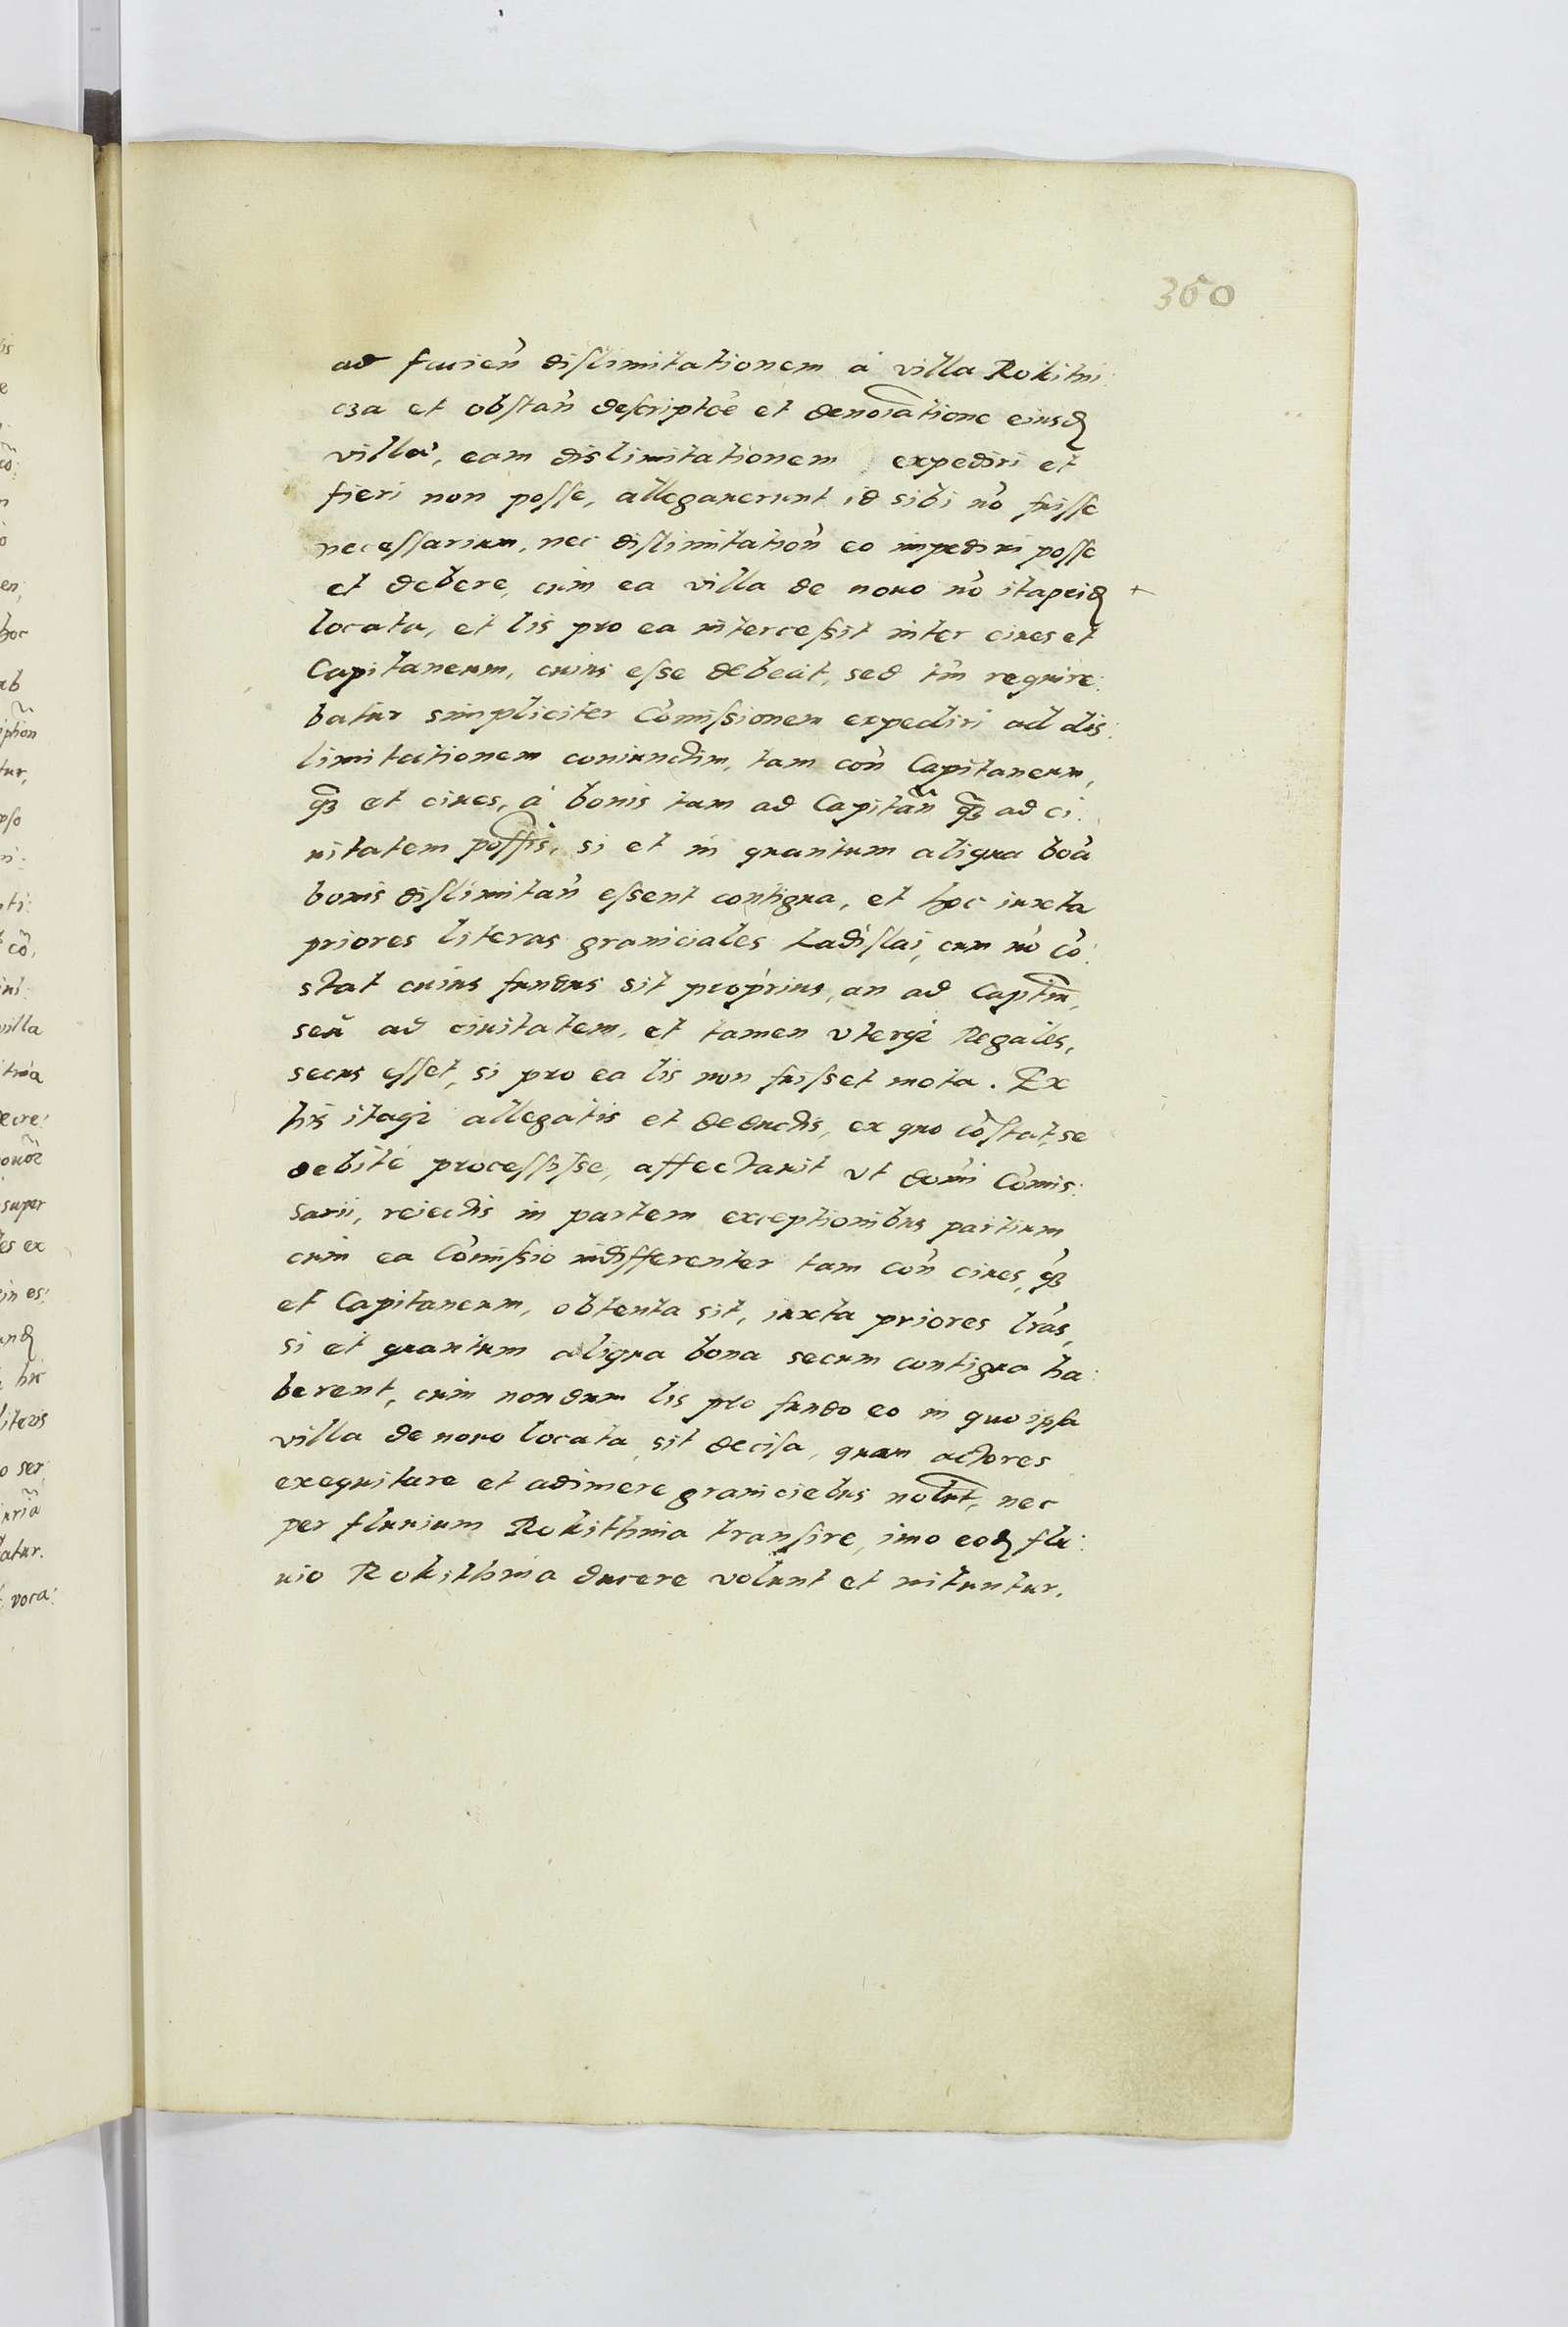 360
ad facien̄ diſlimitationem à villa Rokitni:
cza et obſtan̄ deſcriptōe et denoīatione eiusꝺ
villæ, eam dislimitationem expediri et
fieri non poſſe, allegauerunt id sibi nō fuiſſe
neceſſarium, nec diſlimitation̄ eo impediri poſſe
et debere, cùm ea villa de nouo nō itapridꝺ +
locata, et lis pro ea interceſsit inter ciues et
Capitaneum, cuius eſse debeat, sed tm̄ require:
batur simpliciter Cōmiſsionem expediri ad dis:
limitationem coniunctim, tam con̄ Capitaneum,
qꝫ et ciues, à bonis tam ad Capitan̄ qꝫ ad ci:
uitatem poſſis, si et in quantum aliqua boā
bonis diſlimitan̄ eſsent contigua, et hoc iuxta
priores literas graniciales Ladiſlai, cum nō cō:
stat cuius fundus sit proprius, an ad Captm̄,
seu ad ciuitatem, et tamen vterqꝫ Regales,
secus eſſet, si pro ea lis non fuiſset mota. Ex
his itaqꝫ allegatis et deductis, ex quo cōſtat, se
debitè proceſſiſse, affectauit vt dom̄ Cōmis:
sarii, reiectis in partem exceptionibus partium
cùm ea Cōmiſsio indifferenter tam con̄ ciues, qꝫ
et Capitaneum, obtenta sit, iuxta priores lrās,
si et quantum aliqua bona secum contigua ha:
berent, cùm nondum lis pro fundo eo in quo ipſa
villa de nouo locata sit deciſa, quam actores
exequitare et adimere graniciebus nolūt, nec
per fluuium Rokithnia tranſire, imo eodꝺ flu:
uio Rokithnia ducere volunt et nituntur.